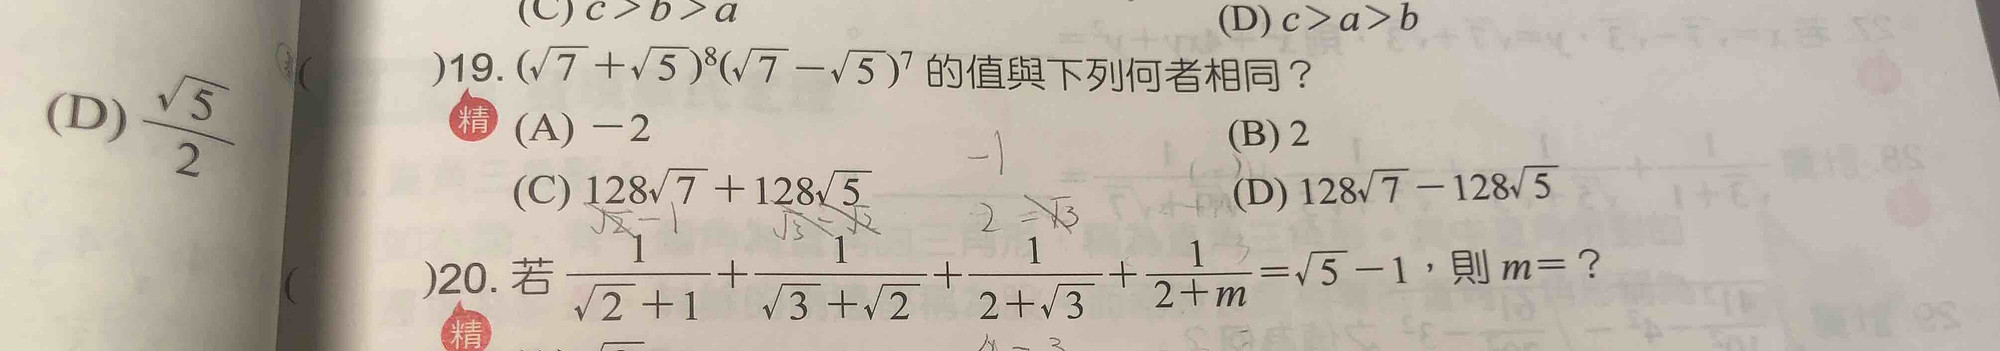 (C) c>b>a (D) c>a>b
(D) √5/2
( )19. (√7+√5)⁸(√7−√5)⁷ 的值與下列何者相同？
精 (A) −2 (B) 2
(C) 128√7+128√5 (D) 128√7−128√5
( )20. 若 1/(√2+1) + 1/(√3+√2) + 1/(2+√3) + 1/(2+m) =√5−1，則 m=？
精